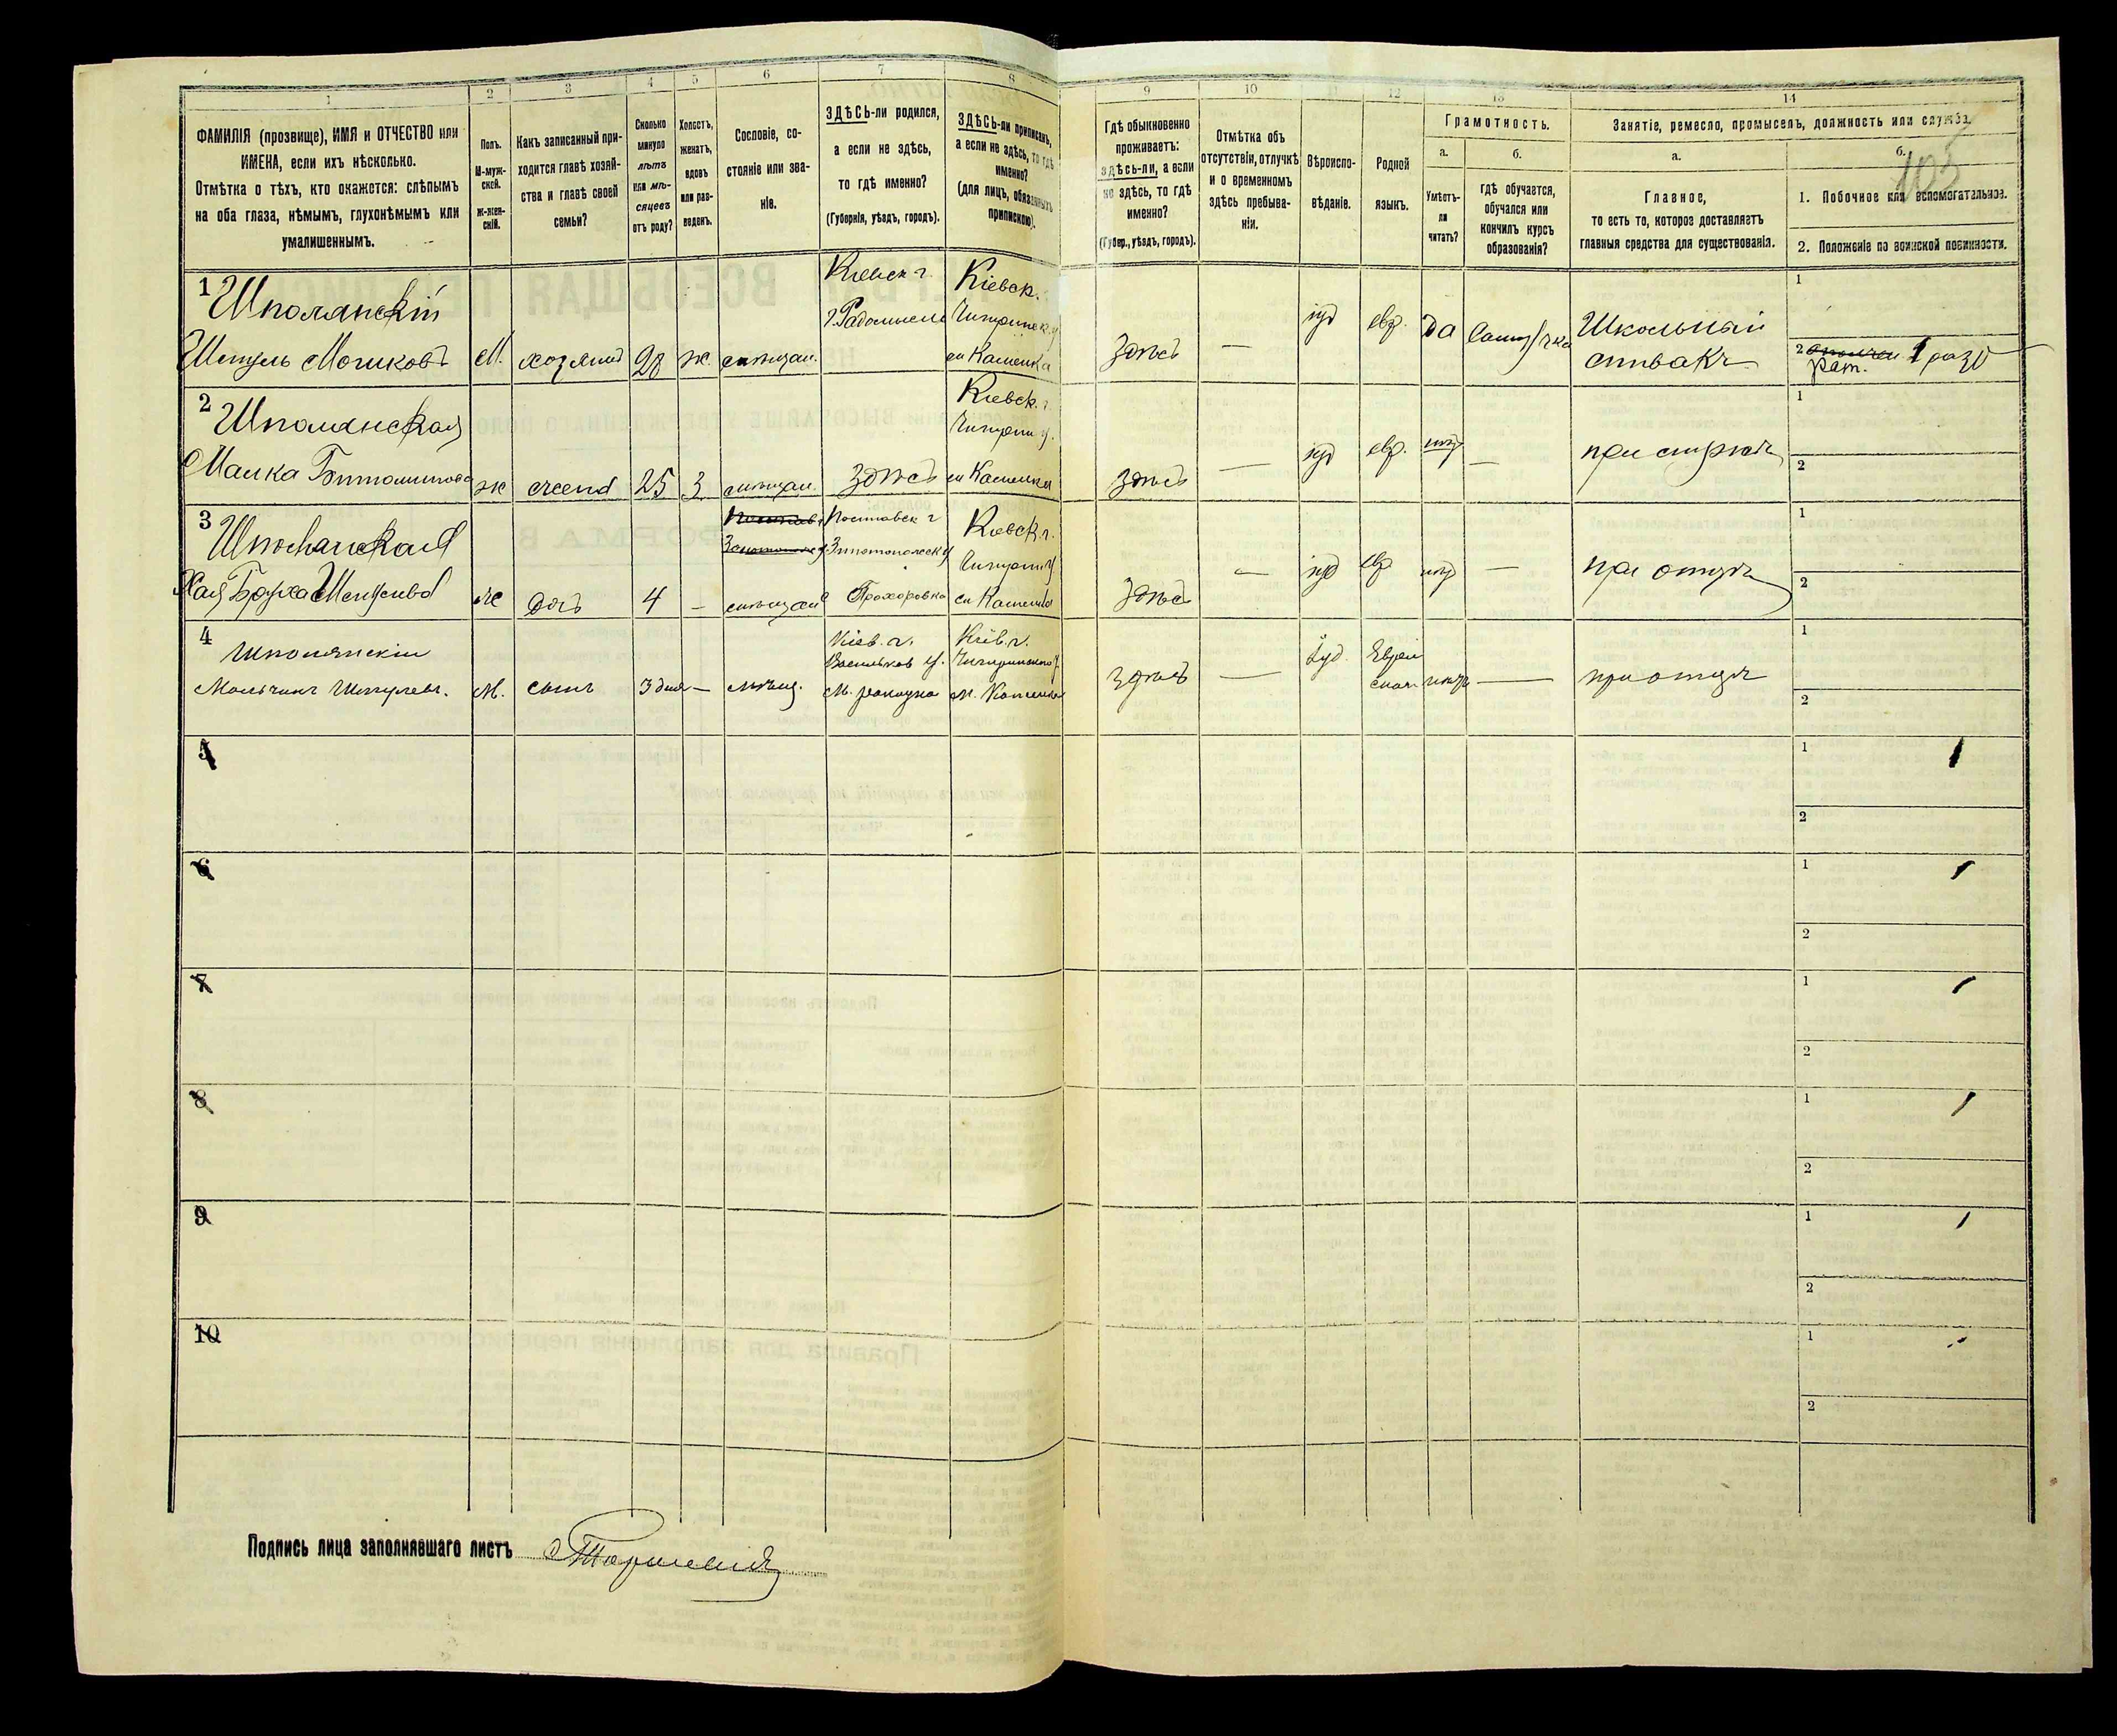 1 2 3 4 5 6 7 8 9 10 11 12 13 14
ФАМИЛІЯ (прозвище), ИМЯ и ОТЧЕСТВО или
ИМЕНА, если ихъ нѣсколько.
Отмѣтка о тѣхъ, кто окажется: слѣпымъ
на оба глаза, нѣмымъ, глухонѣмымъ или
умалишеннымъ.
Полъ.
М-муж-
ской.
Ж-жен-
скій.
Какъ записанный при-
ходится главѣ хозяй-
ства и главѣ своей
семьи?
Сколько
минуло
лѣтъ
или мѣ-
сяцевъ
отъ роду?
Холостъ,
женатъ,
вдовъ
или раз-
веденъ.
Сословіе, со-
стояніе или зва-
ніе.
ЗДѢСЬ-ли родился,
а если не здѣсь,
то гдѣ именно?
(Губернія, уѣздъ, городъ).
ЗДѢСЬ-ли приписанъ,
а если не здѣсь, то гдѣ
именно?
(для лицъ, обязанныхъ
припискою).
Гдѣ обыкновенно
проживаетъ:
здѣсь-ли, а если
не здѣсь, то гдѣ
именно?
(Губер., уѣздъ, городъ).
Отмѣтка объ
отсутствіи, отлучкѣ
и о временномъ
здѣсь пребыва-
ніи.
Вѣроиспо-
вѣданіе.
Родной
языкъ.
Грамотность.
а.
Умѣетъ-
ли
читать?
б.
гдѣ обучается,
обучался или
кончилъ курсъ
образованія?
Занятіе, ремесло, промыселъ, должность или служба.
а.
Главное,
то есть то, которое доставляетъ
главныя средства для существованія.
б.
105
1. Побочное или вспомогательное.
2. Положеніе по воинской повинности.
1 Шполянскій Кіевск г. Кіевск.
г. Радомысль
Шмуль Мошковъ М. хозяинъ 28 ж. мѣщан. м Каменка здѣсь — іуд евр. да
Школьный
спѣвакъ
1
2 Рат. 1 разр
2 Шполянская Кіевск. г.
Чигирин у.
Малка ж жена 25 З мѣщан. здѣсь м Каменка здѣсь — іуд евр. нѣт — при мужѣ
1
2
3 Шполянская Полтавск г Кіевск. г.
Золотоношск у Чигирин у
Хая Бруха Шмулева ж дочь 4 — мѣщан Прохоровка м Каменка здѣсь — іуд евр нѣт — при отцѣ
1
2
4 Шполянскій Кіев. г. Кіев. г.
Васильков у. Чигиринскаго у.
Мальчикъ Шмулевъ. М. сынъ 3 дня — мѣщ. м. Каменка здѣсь — Іуд. Еврей
скій нѣтъ — при отцѣ
1
2
5 1
2
6 1
2
7 1
2
8 1
2
9 1
2
10 1
2
Подпись лица заполнявшаго листъ